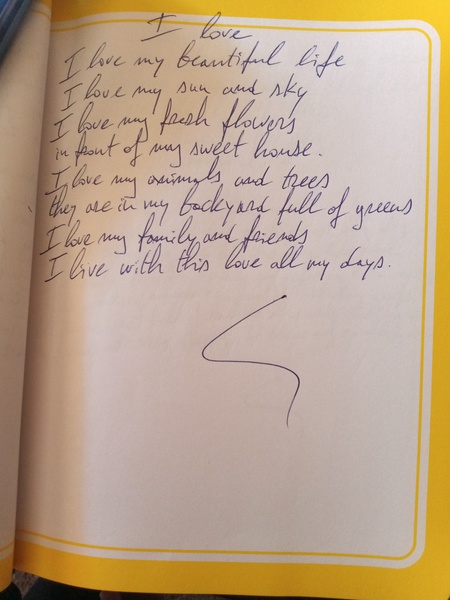 I love
I love my beautiful life
I love my sun and sky
I love my fresh flowers
in front of my sweet house.
I love my animals and trees
they are in my backyard full of greens
I love my family and friends
I live with this love all my days.